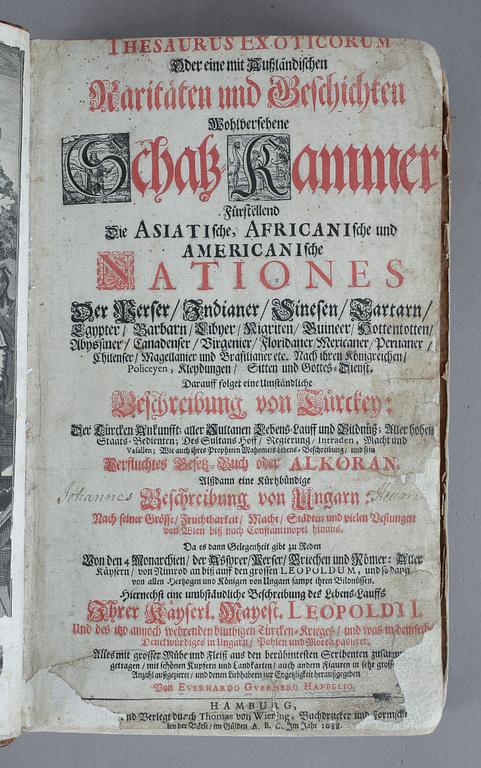 THESAURUS EXOTICORUM
Oder eine mit Außländischen
Raritäten und Geschichten
Wohlversehene
Schatz-Kammer
Fürstellend
Die ASIATische, AFRICANische und
AMERICANische
NATIONES
Der Perser/ Indianer/ Sinesen/ Tartarn/
Egypter/ Barbarn/ Libyer/ Nigriten/ Guineer/ Hottentotten/
Abyssiner/ Canadenser/ Virgenier/ Floridaner/ Mexicaner/ Peruaner/
Chilenser/ Magellanier und Brasilianer etc. Nach ihren Königreichen/
Policeyen, Kleydungen/ Sitten und Gottes-Dienst.
Darauff folget eine Umständliche
Beschreibung von Türckey:
Der Türcken Ankunfft: aller Sultanen Lebens-Lauff und Bildnüß; Aller hohen
Staats-Bedienten; Des Sultans Hoff/ Regierung/ Intraden, Macht und
Vasallen; Wie auch ihres Propheten Mahomets Lebens-Beschreibung/ und sein
Verfluchtes Gesetz-Buch oder ALKORAN.
Alßdann eine Kürtzbündige
Johannes
Beschreibung von Ungarn:
Nach seiner Grösse/ Fruchtbarkeit/ Macht/ Städten und vielen Vestungen
von Wien biß nach Constantinopel hinaus.
Da es dann Gelegenheit gibt zu Reden
Von den 4 Monarchien/ der Assyrer/ Perser/ Griechen und Römer: Aller
Käysern/ von Nimrod an biß auff den grossen LEOPOLDUM, und so dann
von allen Hertzogen und Königen von Ungarn sampt ihren Bildnüssen.
Hiernechst eine umbständliche Beschreibung des Lebens-Lauffs
Ihrer Käyserl. Mayest. LEOPOLDI I.
Und des itzo annoch wehrenden bluthigen Türcken-Krieges/ und was in demselben
Denckwürdiges in Ungarn/ Pohlen und Morea passiret.
Alles mit grosser Mühe und Fleiß aus den berühmtesten Scribenten
getragen/ mit schönen Kupfern und Landkarten/ auch andern Figuren in sehr grosser
Anzahl außgezieret/ und denen Liebhabern zur Ergetzligkeit heraußgegeben
Von EVERHARDO GVERNERO HAPPELIO.
HAMBURG,
nd Verlegt durch Thomas von Wiering, Buchdrucker und
bey der Börse/ im Gülden A. B. C. Im Jahr 1688.